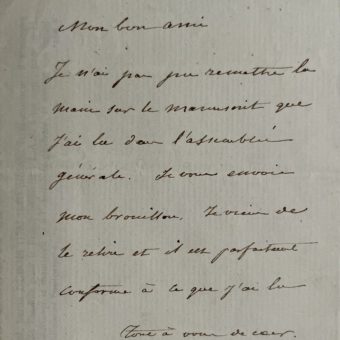 Mon bon ami
Je n'ai pas pu remettre la
main sur le manuscrit que
j'ai lu dans l'assemblée
générale. Je vous envoie
mon brouillon. Je viens de
le relire et il est parfaitement
conforme à ce que j'ai lu
Tout à vous de cœur.